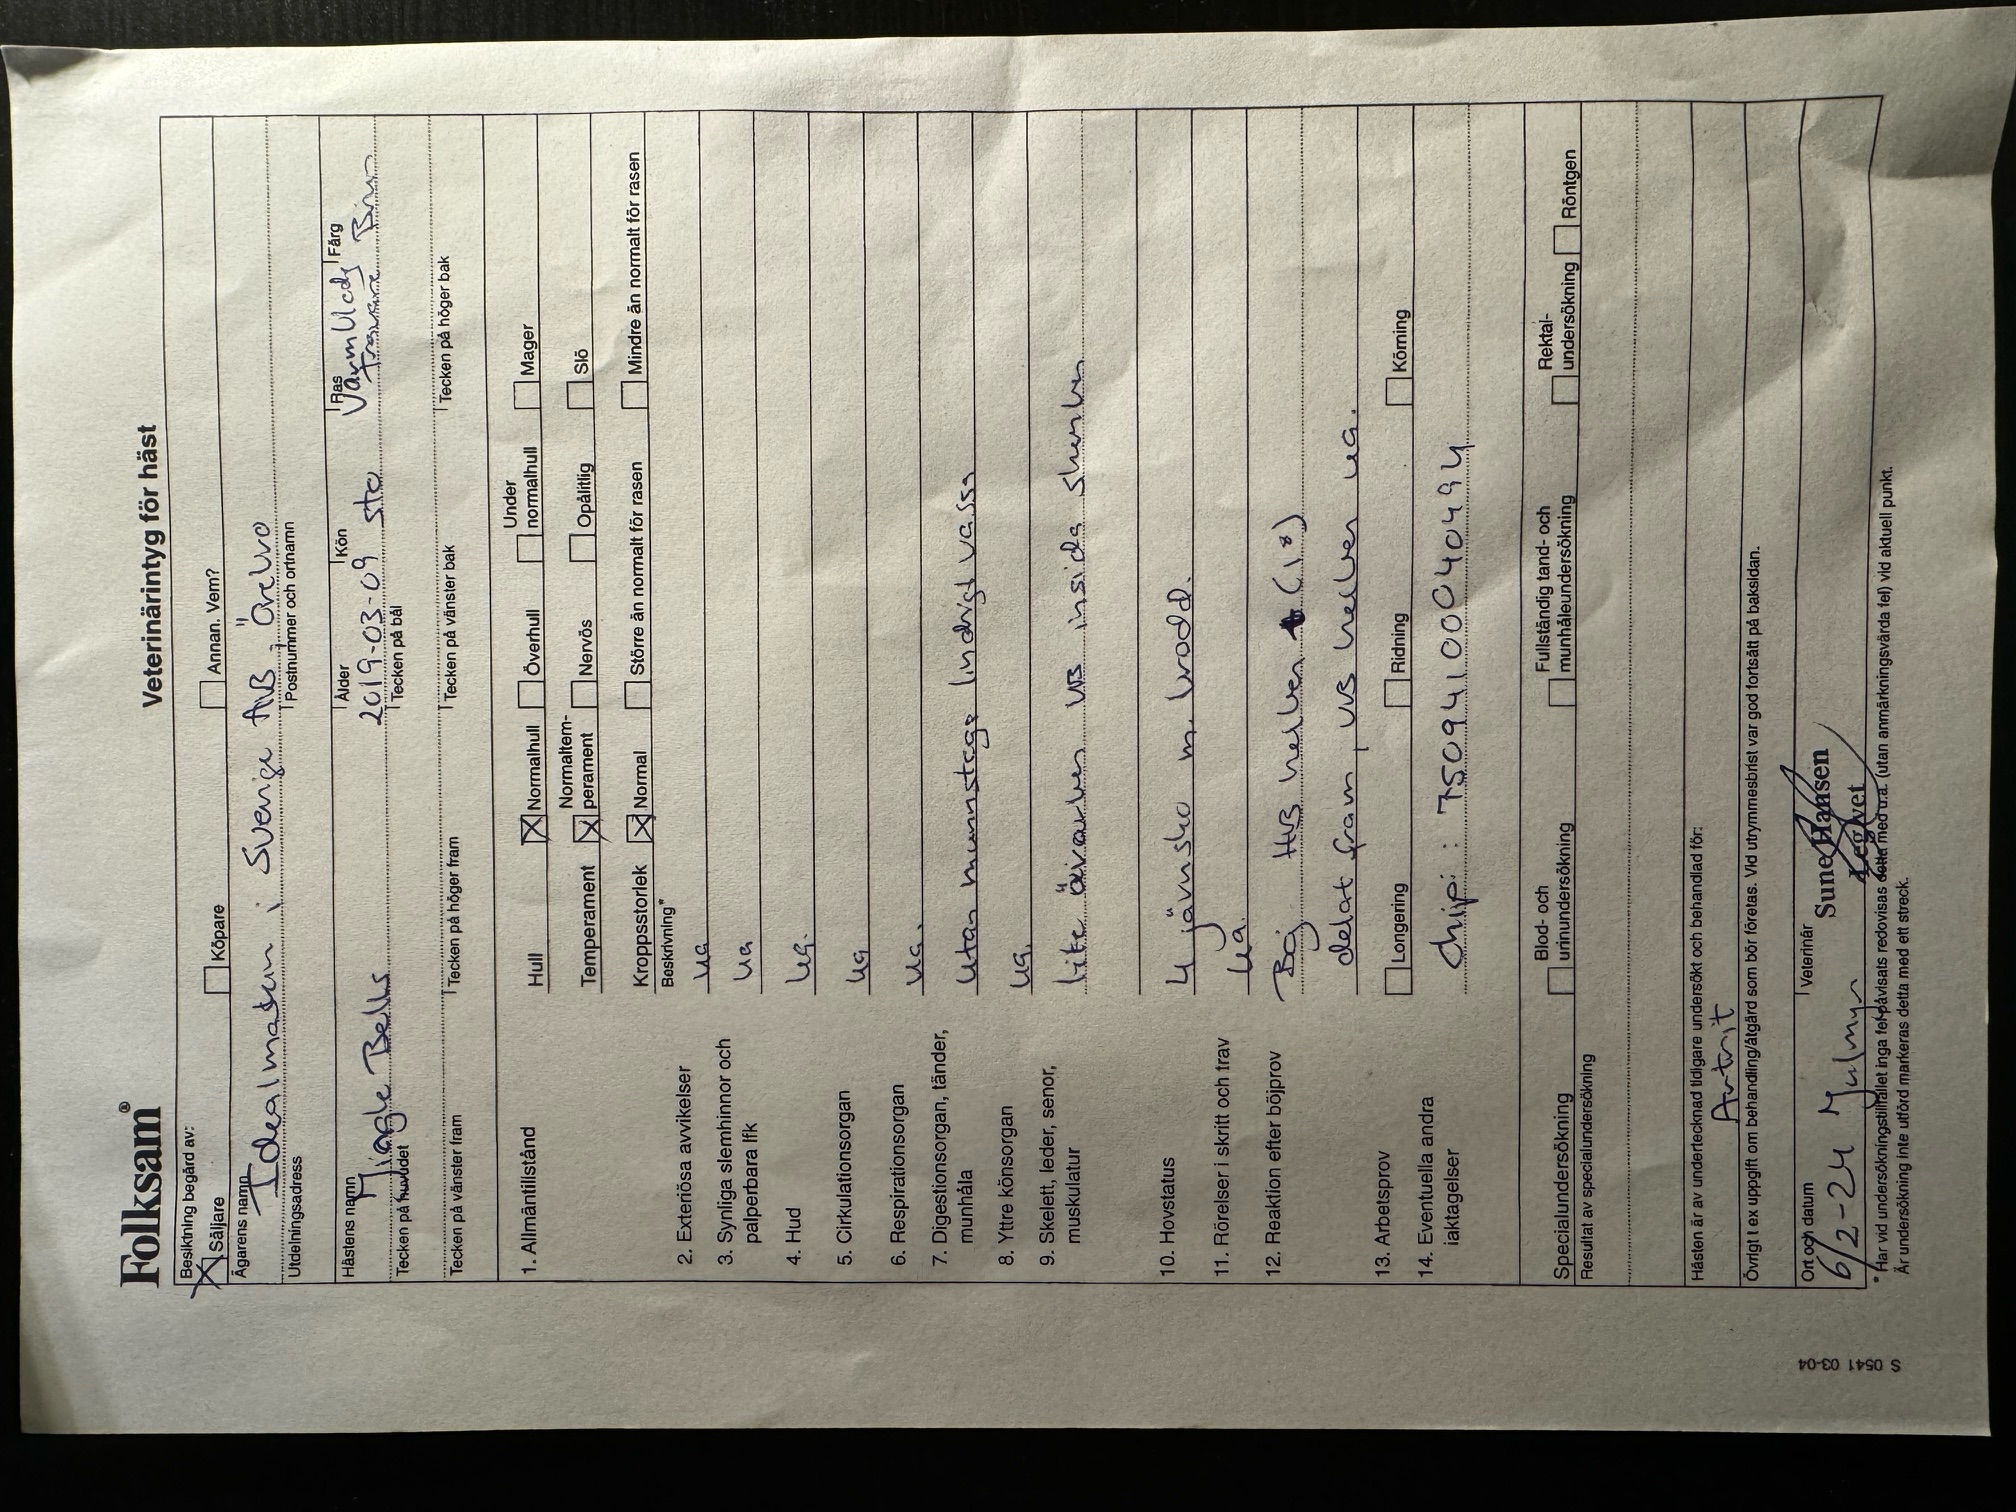 Folksam®
Veterinärintyg för häst
Besiktning begärd av:
Säljare Köpare Annan. Vem?
Ägarens namn
Idealmaten i Sverige AB, Örebro
Utdelningsadress Postnummer och ortnamn
Hästens namn Ålder Kön Ras Färg
Mingle Bells 2019-03-09 sto Varmblodig travare Brun
Tecken på huvudet Tecken på bål
Tecken på vänster fram Tecken på höger fram Tecken på vänster bak Tecken på höger bak
1. Allmäntillstånd Hull Normalhull Överhull Under normalhull Mager
Temperament Normaltem-perament Nervös Opålitlig Slö
Kroppsstorlek Normal Större än normalt för rasen Mindre än normalt för rasen
Beskrivning*
2. Exteriösa avvikelser ua
3. Synliga slemhinnor och
palperbara lfk ua
4. Hud ua.
5. Cirkulationsorgan ua
6. Respirationsorgan ua.
7. Digestionsorgan, tänder,
munhåla utan munstege lindrigt vassa
8. Yttre könsorgan ua.
9. Skelett, leder, senor,
muskulatur lite överben VB insida skenben
10. Hovstatus 4 järnsko m. brodd.
11. Rörelser i skritt och trav ua.
12. Reaktion efter böjprov Böj HB helben (1°)
delat fram, VB helben ua.
13. Arbetsprov Longering Ridning Körning
14. Eventuella andra
iaktagelser chip: 752094100040494
Specialundersökning Blod- och urinundersökning Fullständig tand- och munhåleundersökning Rektal-undersökning Röntgen
Resultat av specialundersökning
Hästen är av undertecknad tidigare undersökt och behandlad för:
Artrit
Övrigt t ex uppgift om behandling/åtgärd som bör företas. Vid utrymmesbrist var god fortsätt på baksidan.
Ort och datum Veterinär
6/2-24 Sune Hansen
Leg Vet
* Har vid undersökningstillfället inga fel påvisats redovisas detta med u.a. (utan anmärkningsvärda fel) vid aktuell punkt.
Är undersökning inte utförd markeras detta med ett streck.
S 0541 03-04